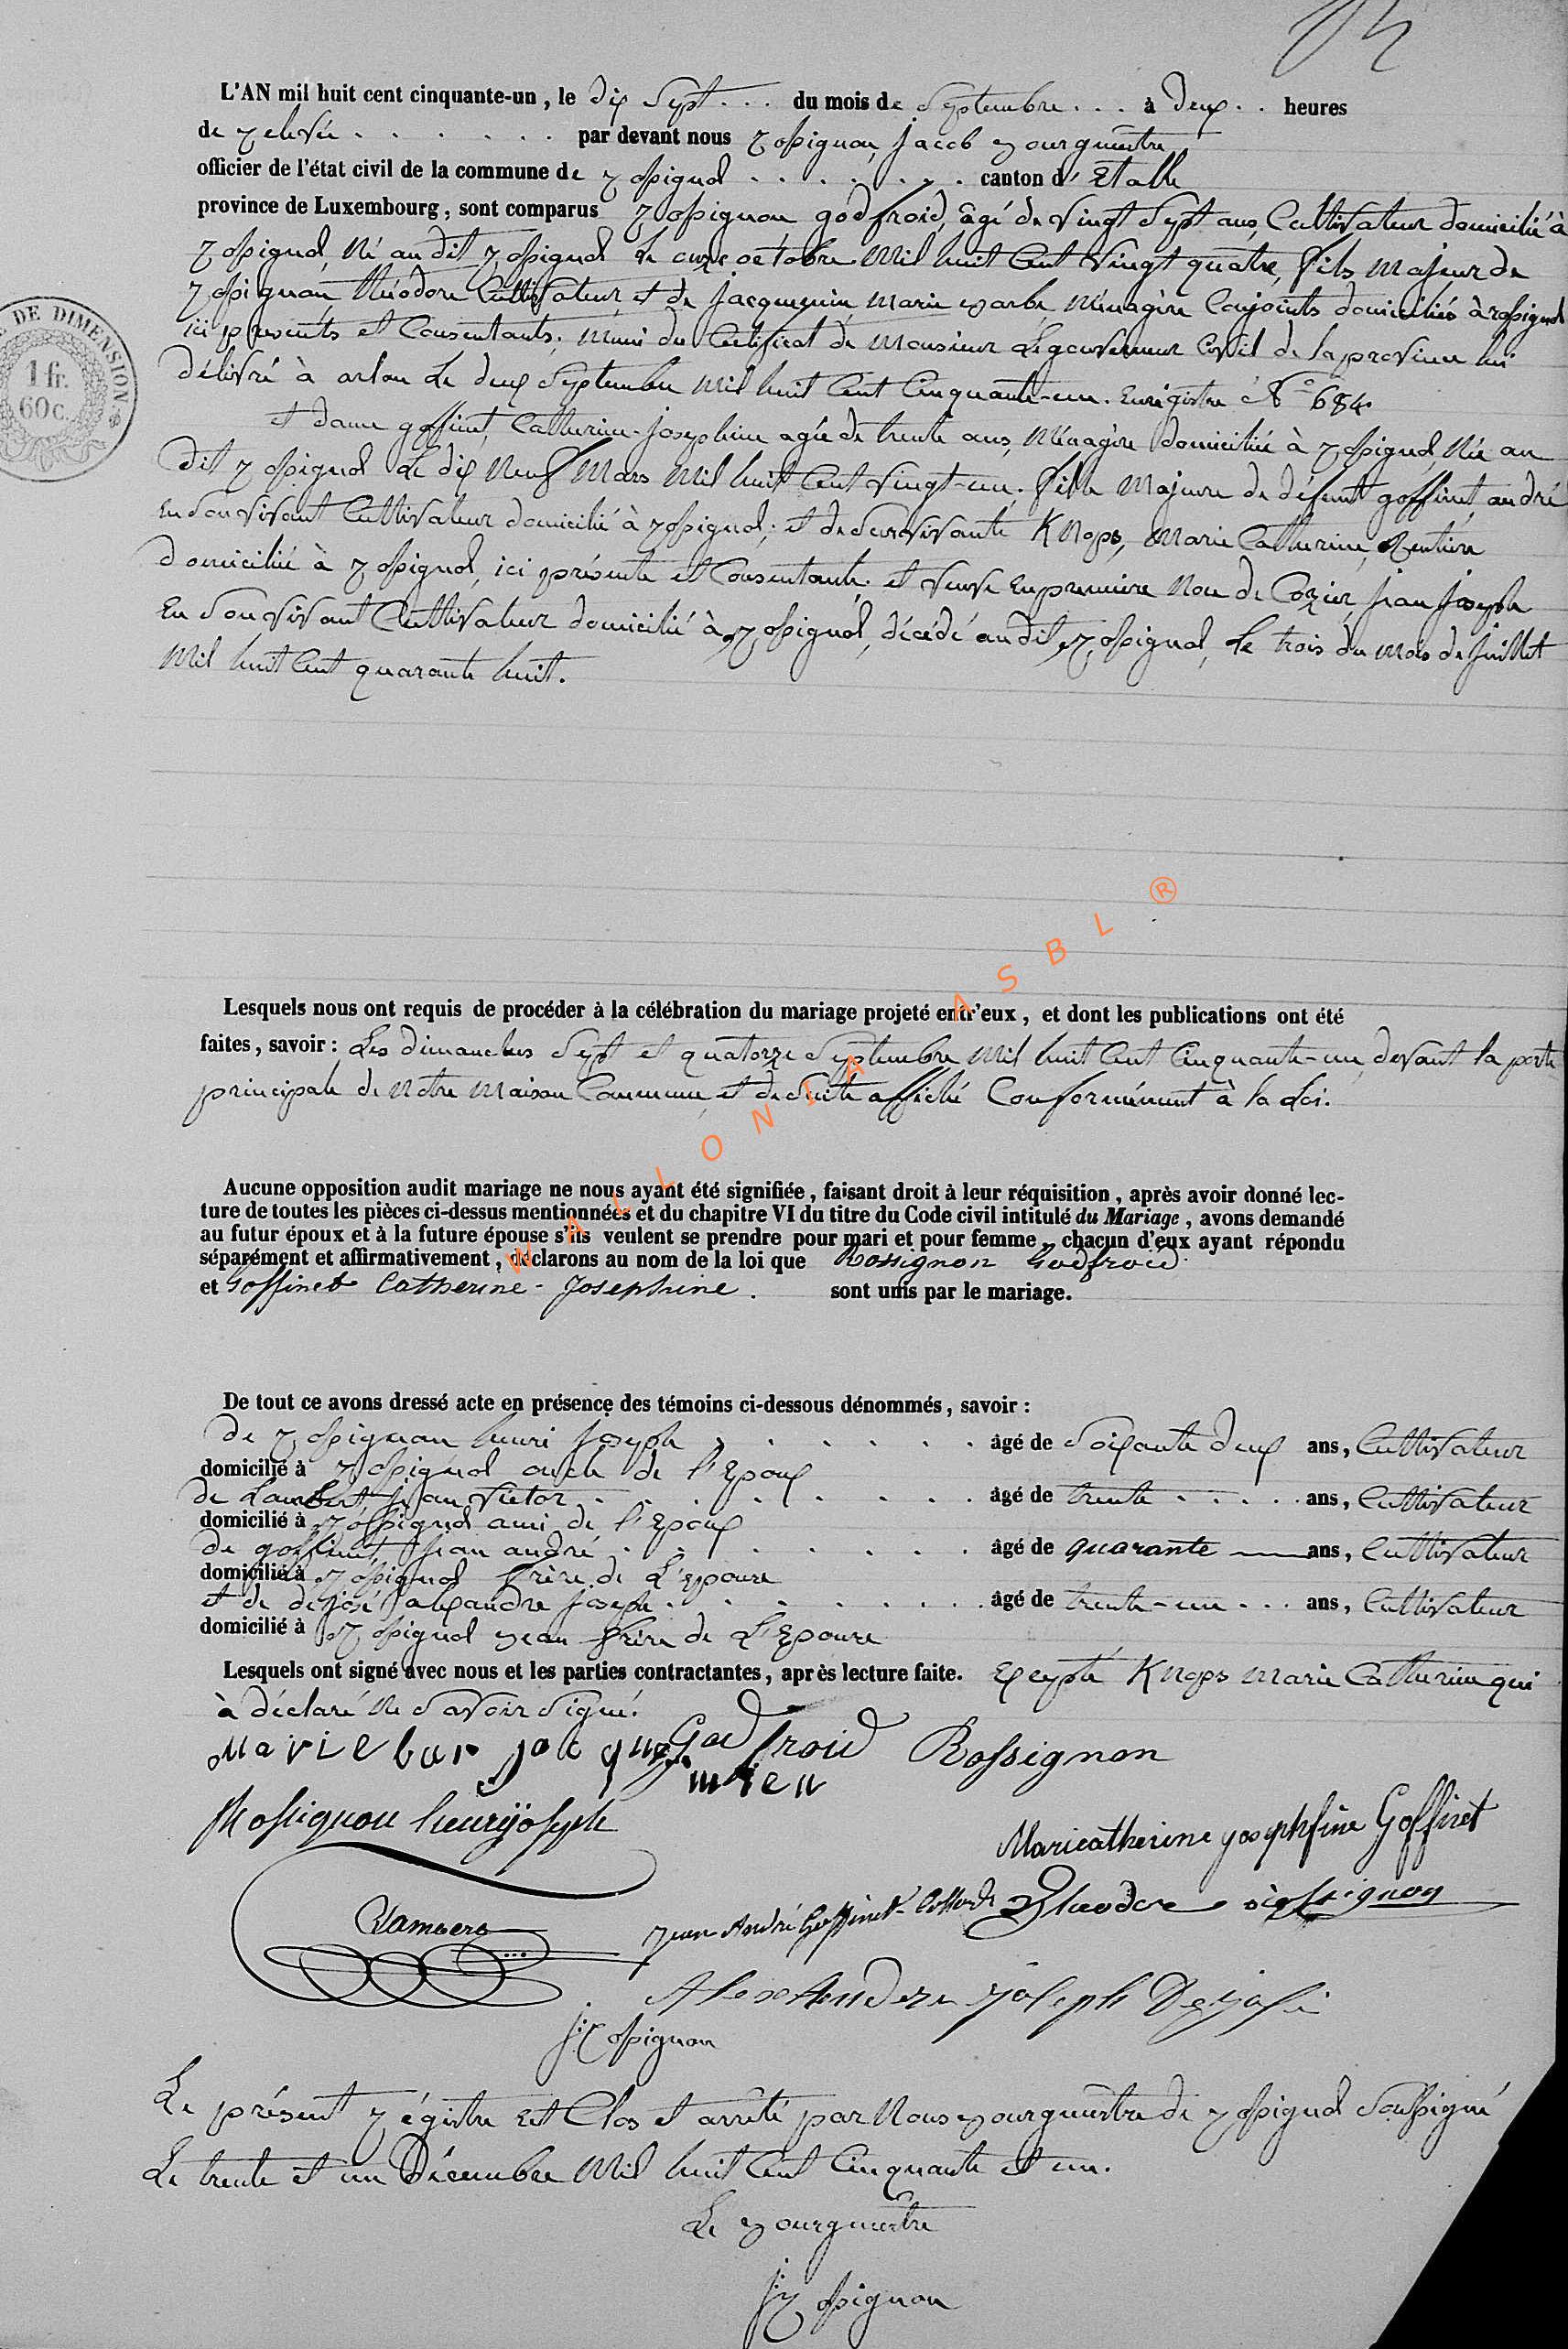 L'AN mil huit cent cinquante-un, le dix Sept . . . du mois de Septembre . . . à deux . . heures
de relevée . . . . . . . par devant nous rossignon, jacob bourguestre
officier de l'état civil de la commune de rossignol . . . . . . . canton d'Etalle
province de Luxembourg, sont comparus rossignon, godfroid, âgé de vingt Sept ans, Cultivateur domicilié à
rossignol, Né au dit rossignol le onze octobre Mil huit Cent vingt quatre, fils Majeur de
rossignon théodore Cultivateur, et de jacquemin, marie barbe Ménagère Conjoints domiciliés à rossignol
ici présents et Consentants; Muni du Certificat de Monsieur Le gouverneur Civil de la province lui
délivré à arlon Le deux Septembre Mil huit Cent Cinquante-un. Enrigistre N° 684.
et dame goffinet, Catherine-josephine agée de trente ans, Ménagère domiciliée à rossignol, Née au
dit rossignol Le dix Neuf Mars Mil huit Cent vingt-un. fille Majeure de défunt goffinet, andré
En Son vivant Cultivateur domicilié à rossignol; et de Survivante Knops, Marie Catherine, Rentière
domiciliée à rossignol, ici présente et Consentante; et veuve En première Noce de Cozier, jean joseph
En Son vivant Cultivateur domicilié à rossignol, décédé au dit rossignol, Le trois du mois de juillet
Mil huit Cent quarante huit.
Lesquels nous ont requis de procéder à la célébration du mariage projeté entr'eux, et dont les publications ont été
faites, savoir: Les dimanches Sept et quatorze Septembre Mil huit Cent Cinquante-un, devant la porte
principale de Notre Maison Commune, et de Suite affiché Conformément à la Loi.
Aucune opposition audit mariage ne nous ayant été signifiée, faisant droit à leur réquisition, après avoir donné lec-
ture de toutes les pièces ci-dessus mentionnées et du chapitre VI du titre du Code civil intitulé du Mariage, avons demandé
au futur époux et à la future épouse s'ils veulent se prendre pour mari et pour femme, chacun d'eux ayant répondu
séparément et affirmativement, déclarons au nom de la loi que Rossignon Godfroid
et Goffinet Catherine-Josephine. sont unis par le mariage.
De tout ce avons dressé acte en présence des témoins ci-dessous dénommés, savoir:
de rossignon henri joseph . . . . . . . âgé de Soixante deux ans, Cultivateur
domicilié à rossignol oncle de l'Epoux
de Lambert, jean victor . . . . . . . . âgé de trente . . . . . ans, Cultivateur
domicilié à rossignol ami de l'Epoux
de goffinet, jean andré . . . . . . . âgé de quarante ans, Cultivateur
domicilié à rossignol frère de L'epouse
et de dejosé, alexandre joseph . . . . . . . âgé de trente-un . . . ans, Cultivateur
domicilié à rossignol beau frère de L'Epouse
Lesquels ont signé avec nous et les parties contractantes, après lecture faite. Excepté Knops Marie Catherine qui
à déclaré Ne Savoir Signé.
Godfroid Rossignon
Marie bar jacque
mien
Rossignon henrÿ joseph
Mariecatherine josephfine Goffinet
VLambert
Jean André Goffinet Theodore rossignon
Alexandre joseph Dejosé
J: rossignon
Le présent régistre Est Clos et arrêté par Nous bourguestre de rossignol Soussigné
Le trente et un Décembre Mil huit Cent Cinquante et un.
Le bourguestre
J: rossignon
DE DIMENSION
1 fr.
60 c.
WALLONIA ASBL ®